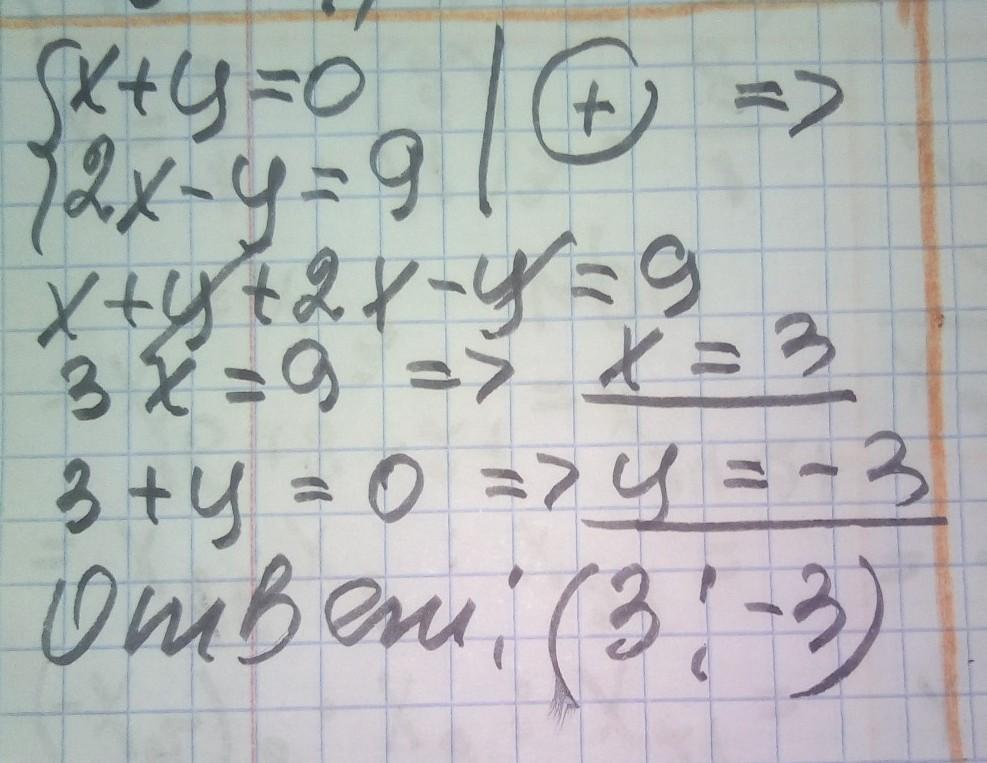 {x+y=0 | (+) =>
{2x-y=9
x+y+2x-y=9
3x=9 => x=3
3+y=0 => y=-3
Ответ: (3;-3)